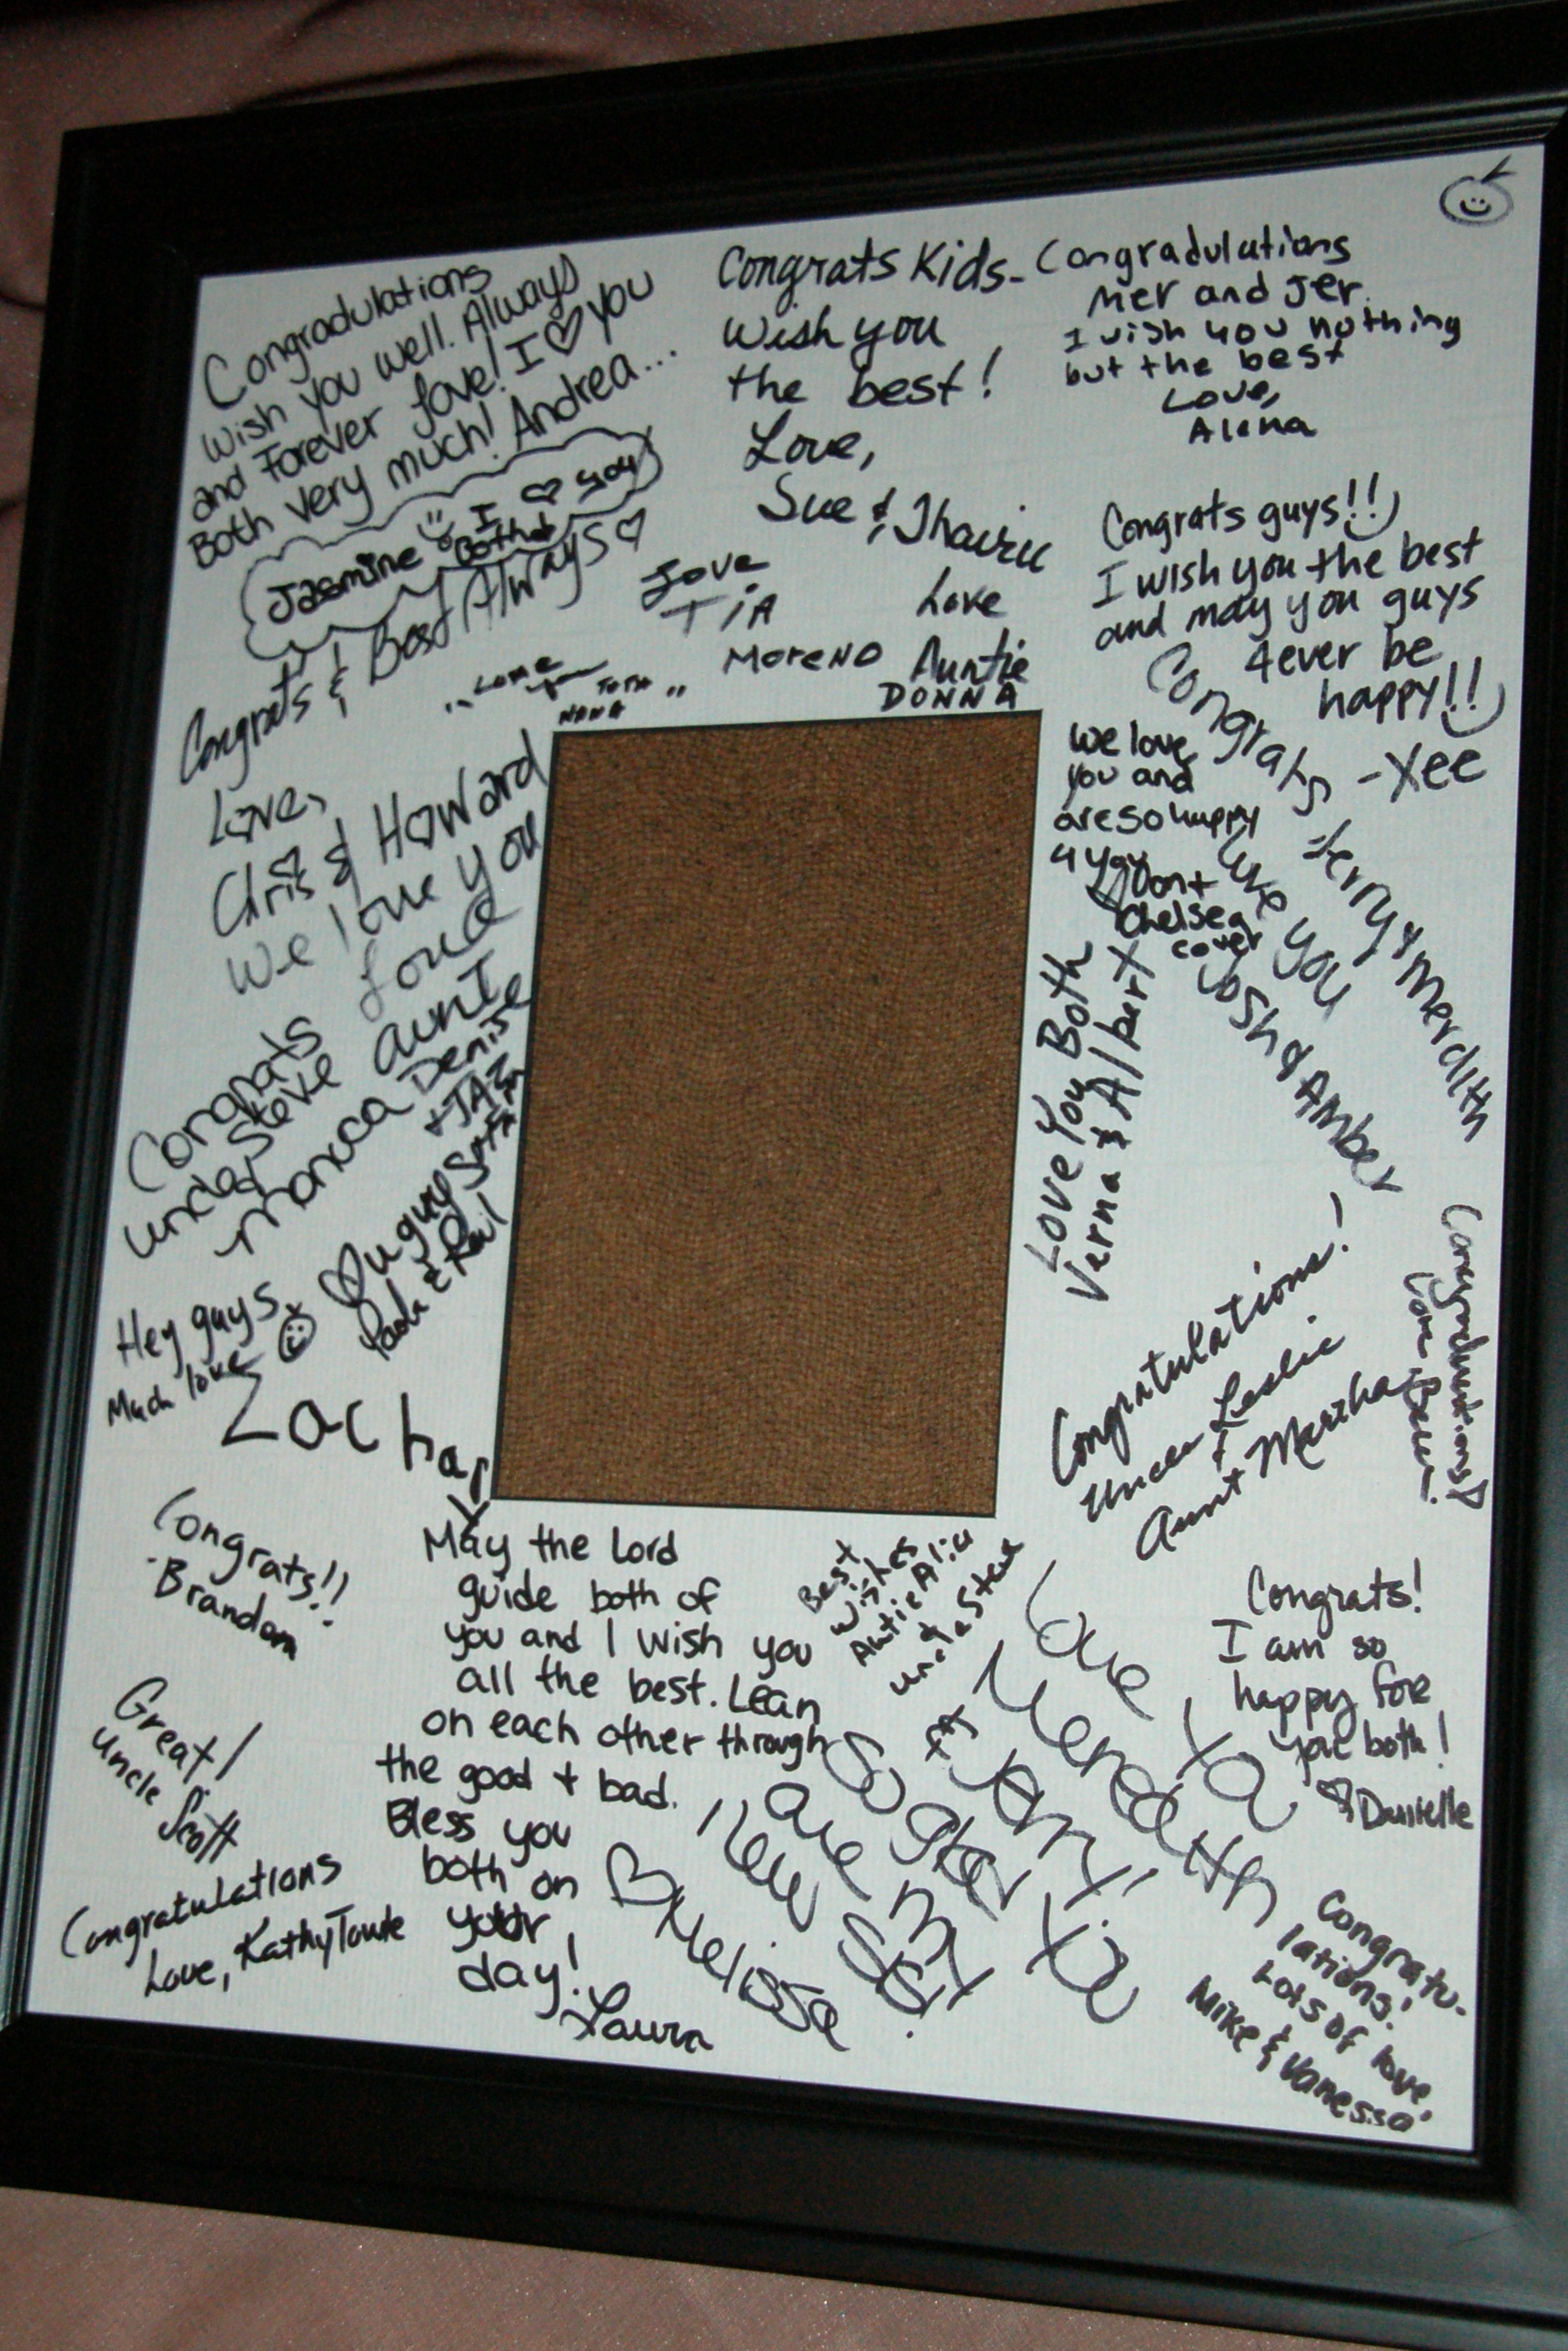 Congradulations
Wish you well. Always
and Forever love! I ♡ you
Both very much! Andrea...
Jasmine I ♡ you
Both
Congrats & Best Always ♡
Love,
Chris & Howard
We love you
"Love
NANA
Congrats Kids-
Wish you
the best!
Love,
Sue &
Love
TIA
MORENO
Love
Auntie
DONNA
Congradulations
Mer and Jer
I wish you nothing
but the best
Love,
Alena
Congrats guys!!
I wish you the best
and may you guys
4ever be
happy!!
-Xee
Congrats Jerry & Merdith
Love you
Josh & Amber
We love
you and
are so happy
4 you
Chelsea
Love You Both
Verna & Albert
Love
Aunt
Denise
+ JAZ
Congrats
uncle Steve
Monica
♡ u guys
Paola &
Hey guys,
Much love
Zachary
Congrats!!
-Brandon
Great!
Uncle Scott
Congratulations
Love, Kathy
May the Lord
guide both of
you and I wish you
all the best. Lean
on each other through
the good + bad.
Bless you
both on
your
day!
Laura
Best
wishes
Auntie
&
uncle Steve
Love Ya
Meredith
& Jerry!
So glad Ya
are my
New Sis!
♡ Melissa
Congratulations!
Uncle Leslie
+
Aunt Martha
Congradulations!
Love,
Congrats!
I am so
happy for
you both!
♡ Danielle
Congratu-
lations!
Lots of love,
Mike & Vanessa